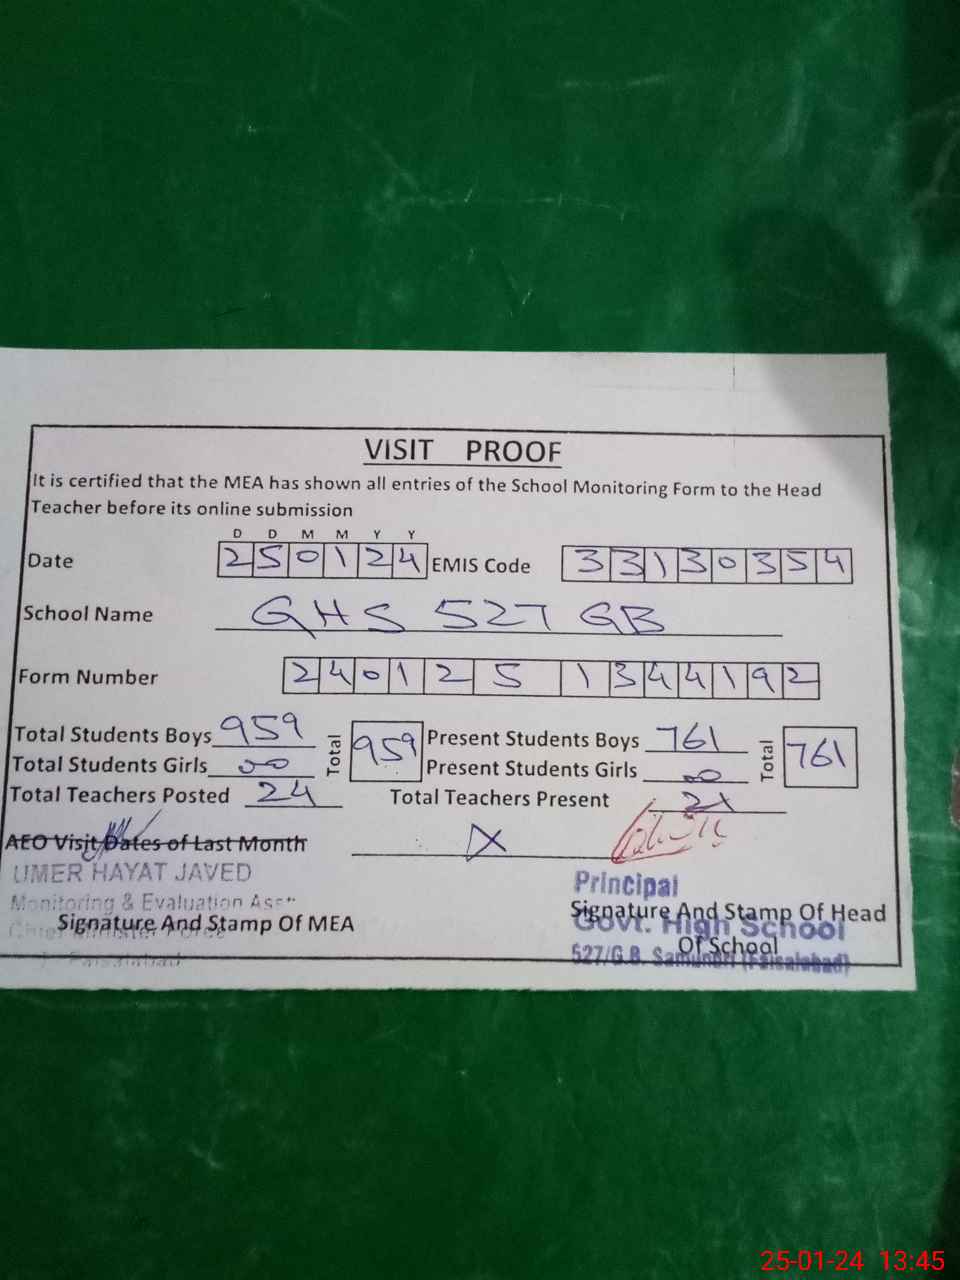 VISIT PROOF
It is certified that the MEA has shown all entries of the School Monitoring Form to the Head
Teacher before its online submission
D D M M Y Y
Date 250124 EMIS Code 33130354
School Name GHS 527 GB
Form Number 2401251344192
Total Students Boys 959 Total 959 Present Students Boys 761 Total 761
Total Students Girls 00 Present Students Girls 00
Total Teachers Posted 24 Total Teachers Present
AEO Visit Dates of Last Month X
UMER HAYAT JAVED
Monitoring & Evaluation Asstt
Chief Minister Force
Faisalabad
Signature And Stamp Of MEA
Principal
Govt. High School
527/G.B. Samundri (Faisalabad)
Signature And Stamp Of Head
Of School
25-01-24 13:45